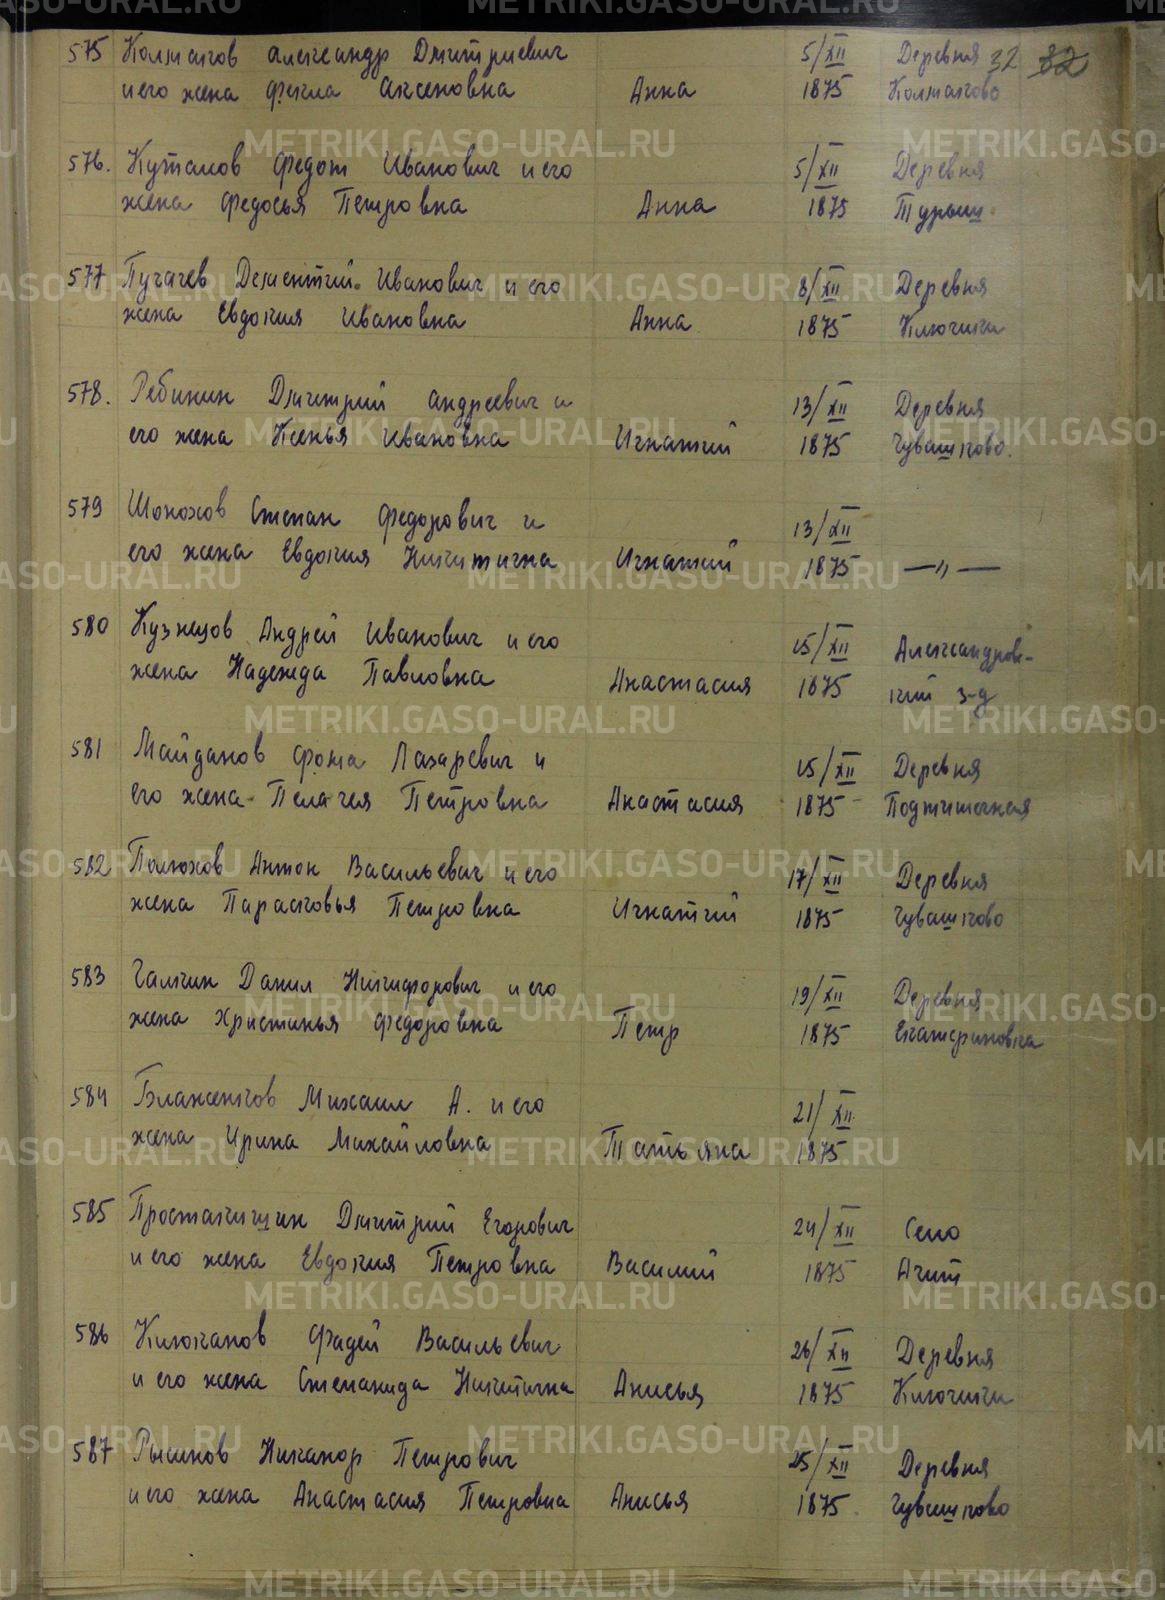 575 Колмаков Александр Дмитриевич 5/XII Деревня 32 82
и его жена Фекла Аксеновна Анна 1875 Колмаково
576. Куталов Федот Иванович и его 5/XII Деревня
жена Федосья Петровна Анна 1875 Турыш
577 Пугачев Дементий Иванович и его 8/XII Деревня
жена Евдокия Ивановна Анна 1875 Ключики
578. Ребинин Дмитрий Андреевич и 13/XII Деревня
его жена Ксенья Ивановна Игнатий 1875 Чувашково.
579 Шонохов Степан Федорович и 13/XII
его жена Евдокия Никитична Игнатий 1875 —„—
580 Кузнецов Андрей Иванович и его 15/XII Александров-
жена Надежда Павловна Анастасия 1875 кий з-д
581 Майданов Фома Лазаревич и 15/XII Деревня
его жена Пелагея Петровна Анастасия 1875
582 Полюхов Антон Васильевич и его 17/XII Деревня
жена Парасковья Петровна Игнатий 1875 Чувашково
583 Галкин Данил Никифорович и его 19/XII Деревня
жена Христинья Федоровна Петр 1875 Екатериновка
584 Блаженков Михаил А. и его 21/XII
жена Ирина Михайловна Татьяна 1875
585 Простакишин Дмитрий Егорович 24/XII Село
и его жена Евдокия Петровна Василий 1875 Ачит
586 Клюканов Фадей Васильевич 26/XII Деревня
и его жена Степанида Никитична Анисья 1875 Ключики
587 Русинов Никанор Петрович 25/XII Деревня
и его жена Анастасия Петровна Анисья 1875 Чувашково
METRIKI.GASO-URAL.RU